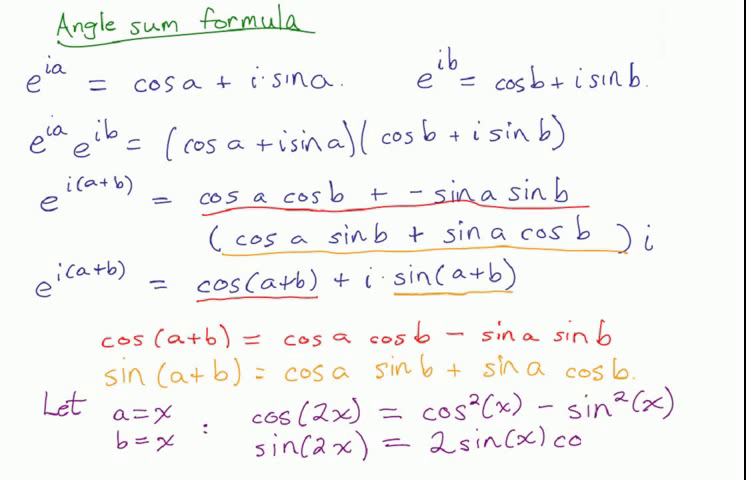 Angle sum formula
e^{ia} = cos a + i·sin a.    e^{ib} = cos b + i sin b.
e^{ia} e^{ib} = (cos a + i sin a)(cos b + i sin b)
e^{i(a+b)} = cos a cos b + - sin a sin b
(cos a sin b + sin a cos b) i
e^{i(a+b)} = cos(a+b) + i·sin(a+b)
cos(a+b) = cos a cos b - sin a sin b
sin(a+b) = cos a sin b + sin a cos b.
Let a=x : cos(2x) = cos²(x) - sin²(x)
b=x sin(2x) = 2sin(x) co